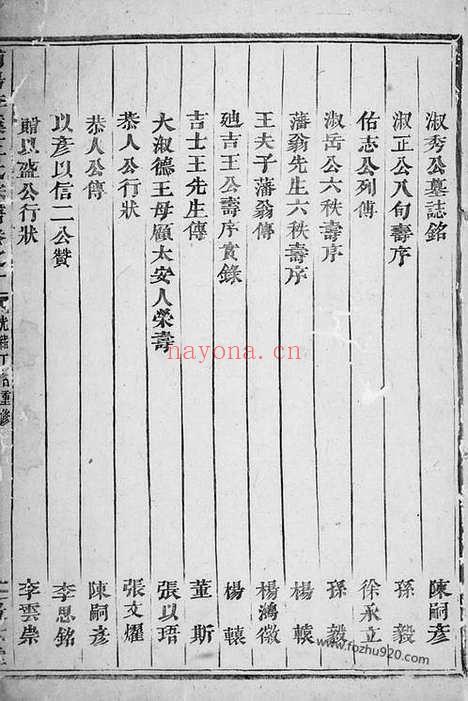 淑秀公墓誌銘 陳嗣彦
淑正公八旬壽序 孫毅
佑志公列傳 徐承立
淑岳公六秩壽序 孫毅
藩翁先生六秩壽序 楊轅
王夫子藩翁傳 楊鴻徽
廸吉王公壽序實錄 楊轅
吉士王先生傳 董斯
大淑德王母顧太安人榮壽 張以珸
恭人公行狀 張文燿
恭人公傳 陳嗣彦
以彦以信二公贊 李思銘
贈以盛公行狀 李雲崇
光緒丁酉重修
nayona.cn
www.fozhu920.com